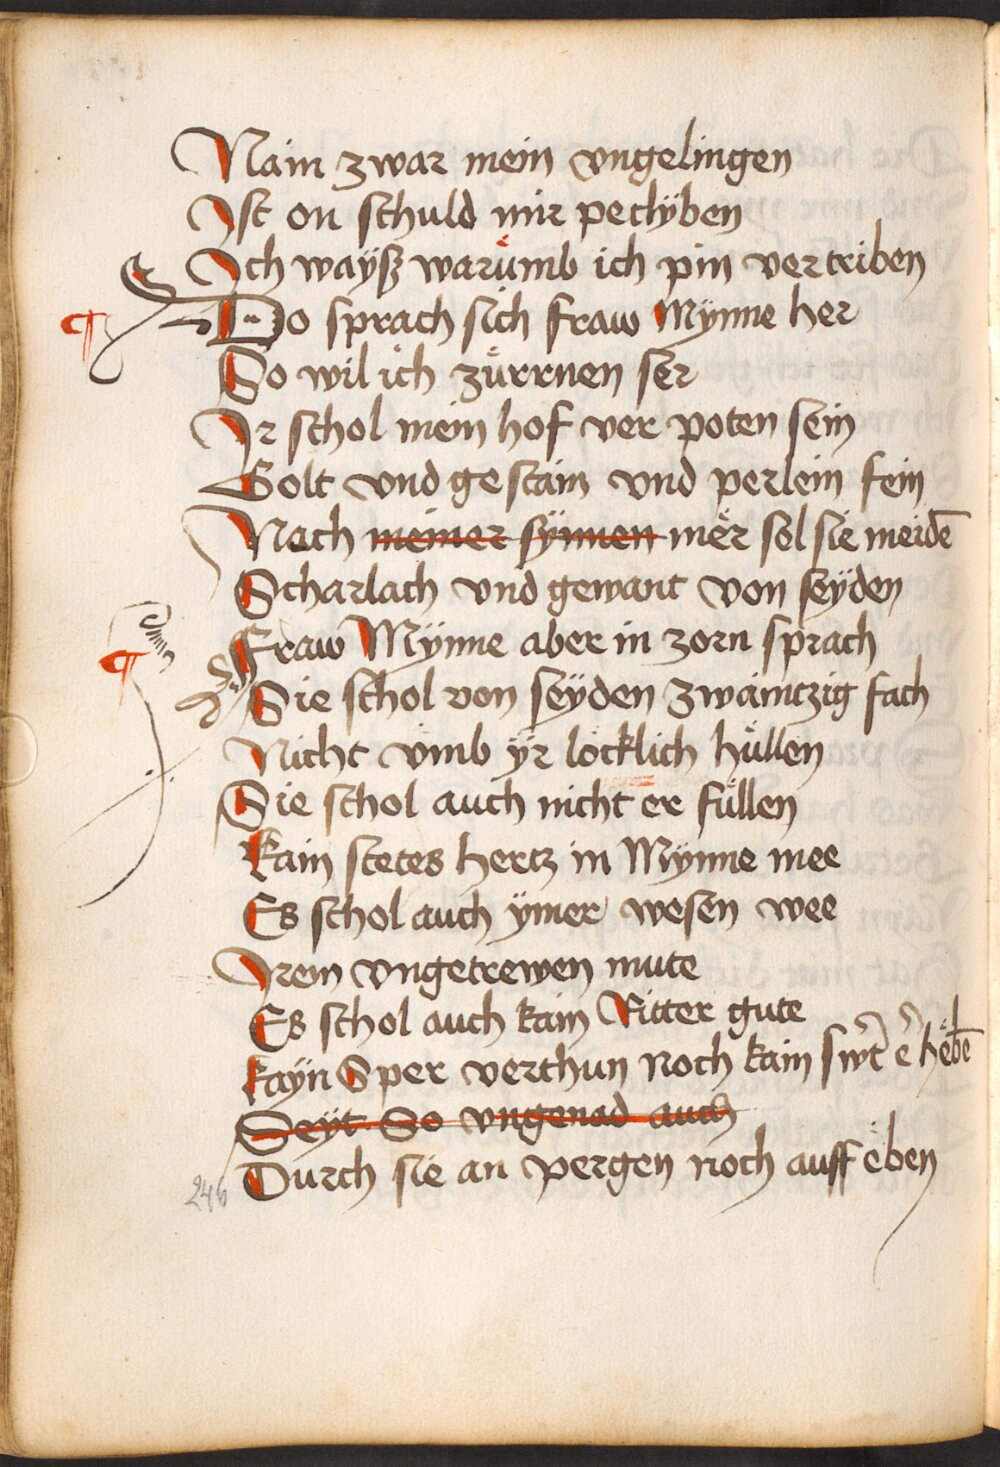 Nain zwar mein vngelingen
Ist on schuld mir peclyben
Ich wayß warumb ich pin vertriben
¶ Do sprach sich fraw Mynne her
So wil ich zürrnen ser
Ir schol mein hof ver poten sein
Golt vnd gestain vnd perlein fein
Nach meiner synnen mer sol sie meidē
Scharlach vnd gewant von seyden
¶ Fraw Mÿnne aber in zorn sprach
Sie schol von seÿden zwaintzig fach
Nicht vmb ÿr löcklich hüllen
Sie schol auch nicht er füllen
Kain stetes hertz in Mÿnne mee
Es schol auch ÿmer wesen wee
Irem vngetrewen mute
Es schol auch kain Ritter gute
kaÿn Sper verthun noch kain swt e hebē
Seÿt So vngenad auch
Durch sie an pergen noch auff eben
246